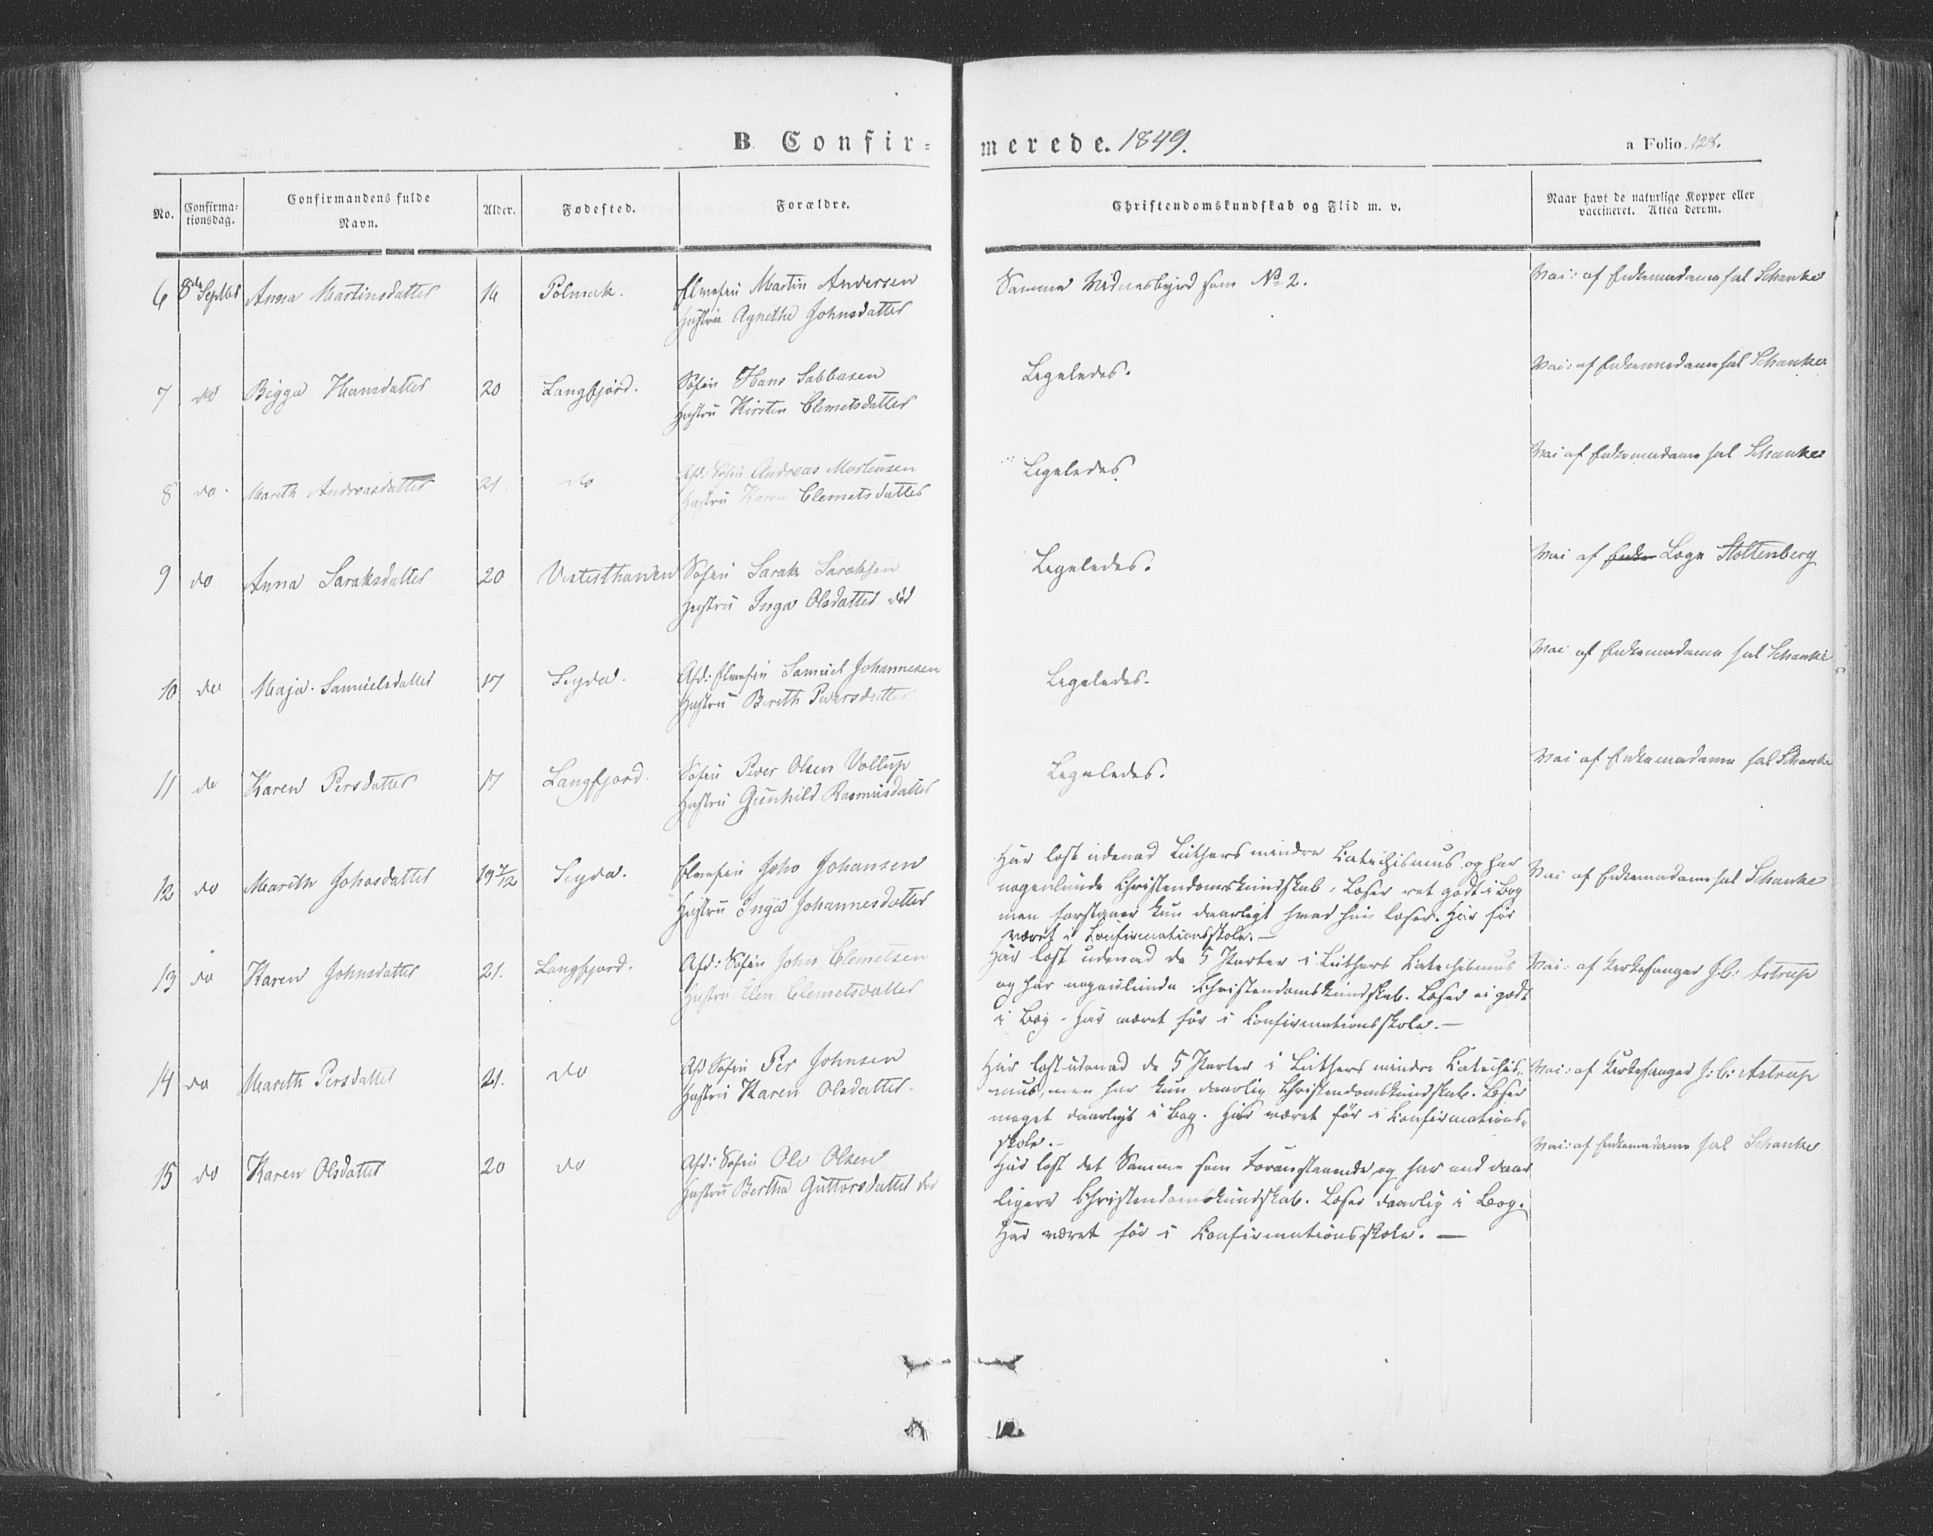 B. Confir-
merede. 1849.
a Folio 128.
No.
Confirma-
tionsdag.
Confirmandens fulde
Navn.
Alder.
Fødested.
Forældre.
Christendomskundskab og Flid m. v.
Naar havt de naturlige Kopper eller
vaccineret. Attea derom.
6 8de Septbr Anna Martinsdatter 16 Polmak. Elvefin Martin Andersen
Hustru Agnethe Johnsdatter
Samme Vidnesbyrd som No 2.
Vac: af Enkemadame sal Schanke
7 do Bigga Hansdatter 20 Langfjord. Søfin Hans Sabbasen
Hustru Kirsten Clemetsdatter
Ligeledes.
Vac: af Enkemadame sal Schanke
8 do. Marith Andreasdatter 21. do Afd: Søfin Andreas Mortensen
Hustru Karen Clemetsdatter
Ligeledes.
Vac af Enkemadame sal Schanke
9 do Anna Saraksdatter 20 Vesterthanden Søfin Sarak Saraksen
Hustru Inga Olsdatter død
Ligeledes.
Vac af Læge Stoltenberg
10 do Maja Samuelsdatter 17 Seyda. Afd: Elvefin Samuel Johannesen
Hustru Berith Pedersdatter
Ligeledes.
Vac af Enkemadame sal Schanke
11 do Karen Persdatter 17 Langfjord. Søfin Peder Olsen
Hustru Gunhild Rasmusdatter
Ligeledes.
Vac af Enkemadame sal Schanke
12 do Marith Johosdatter 19 7/12 Seyda. Elvefin Joho Johansen
Hustru Inga Johannesdatter
Har læst udenad Luthers mindre Catechismus og har
nogenlunde Christendomskundskab. Læser ret godt i Bog
men forstaaer kun daarligt hvad hun læser. Har før
været i Confirmationsskole. —
Vac af Enkemadame sal Schanke
13 do Karen Johnsdatter 21. Langfjord. Afd: Søfin John Clemetsen
Hustru Elen Clemetsdatter
Har læst udenad de 5 Parter i Luthers Catechismus
og har nogenlunde Christendomskundskab. Læser ei godt
i Bog. Har været før i Confirmationsskole. —
Vac: af Kirkesanger J. C: Astrup
14 do Marith Persdatter 21. do Afd Søfin Per Johnsen
Hustru Karen Olsdatter.
Har læst udenad de 5 Parter i Luthers mindre Catechis-
mus, men har kun daarlig Christendomskundskab. Læser
meget daarligt i Bog. Har været før i Confirmations-
skole. —
Vac: af Kirkesanger J. C: Astrup
15 do Karen Olsdatter 20 do Afd: Søfin Ole Olsen
Hustru Bertha Guttorsdatter død
Har læst det Samme som Foranstaaende og har end daar-
ligere Christendomskundskab. Læser daarlig i Bog.
Har været før i Confirmationsskole. —
Vac: af Enkemadame sal Schanke